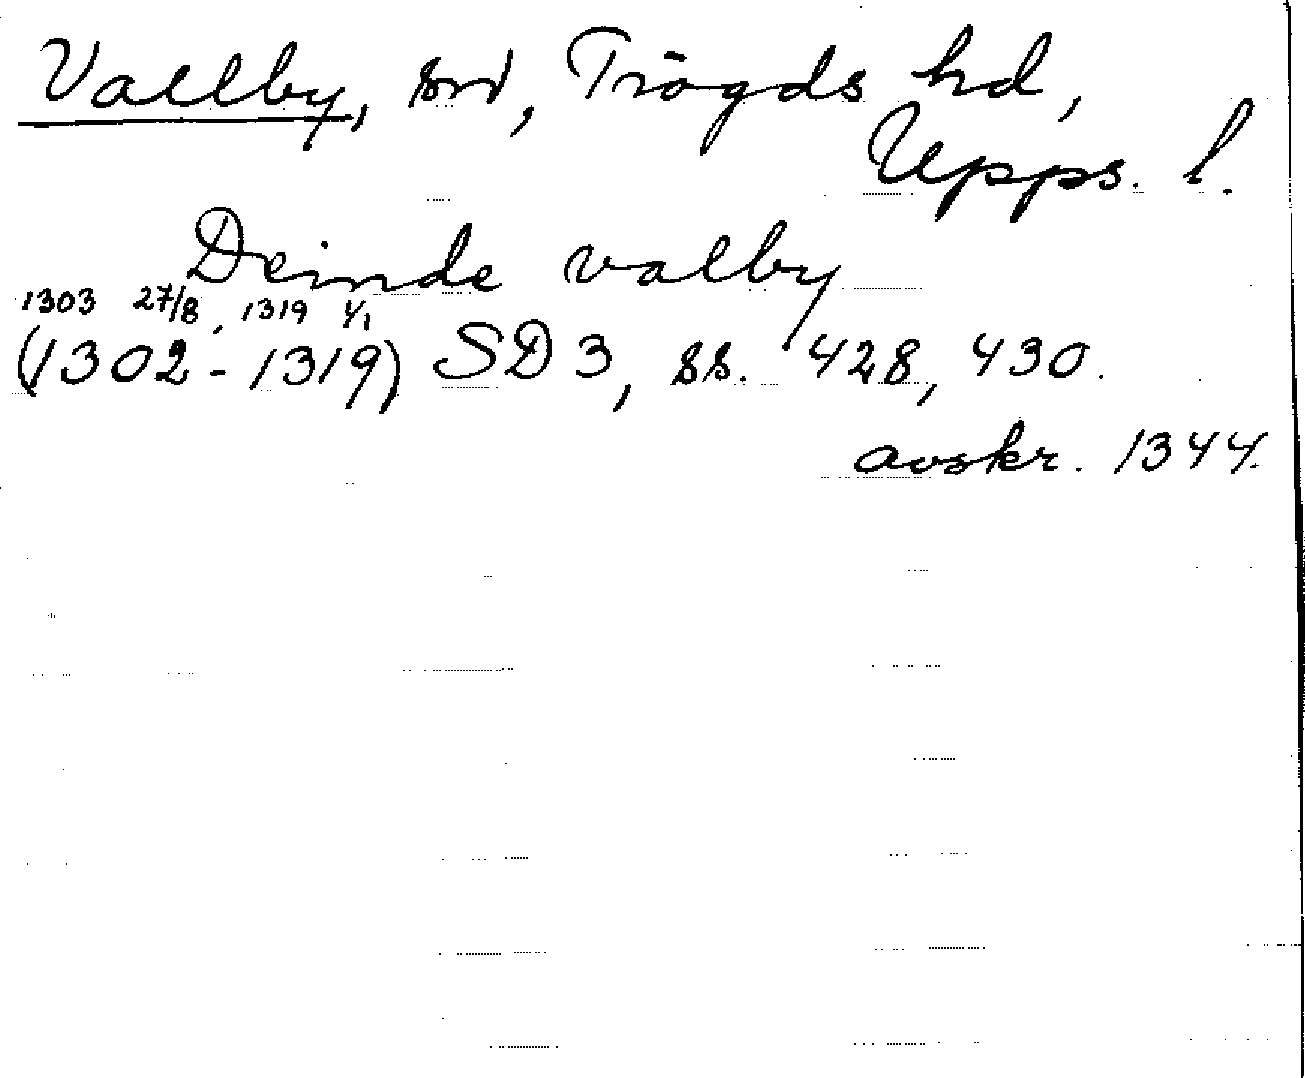 Vallby, sn, Trögds hd,
Upps. l.
Deinde valby
1303 27/8, 1319 1/1
(1302-1319) SD 3, ss. 428, 430.
avskr. 1344.